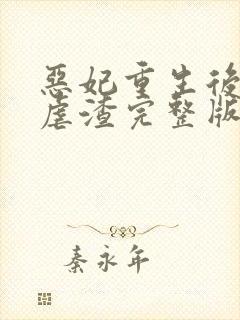 惡妃重生後
虐渣完整版
秦永年